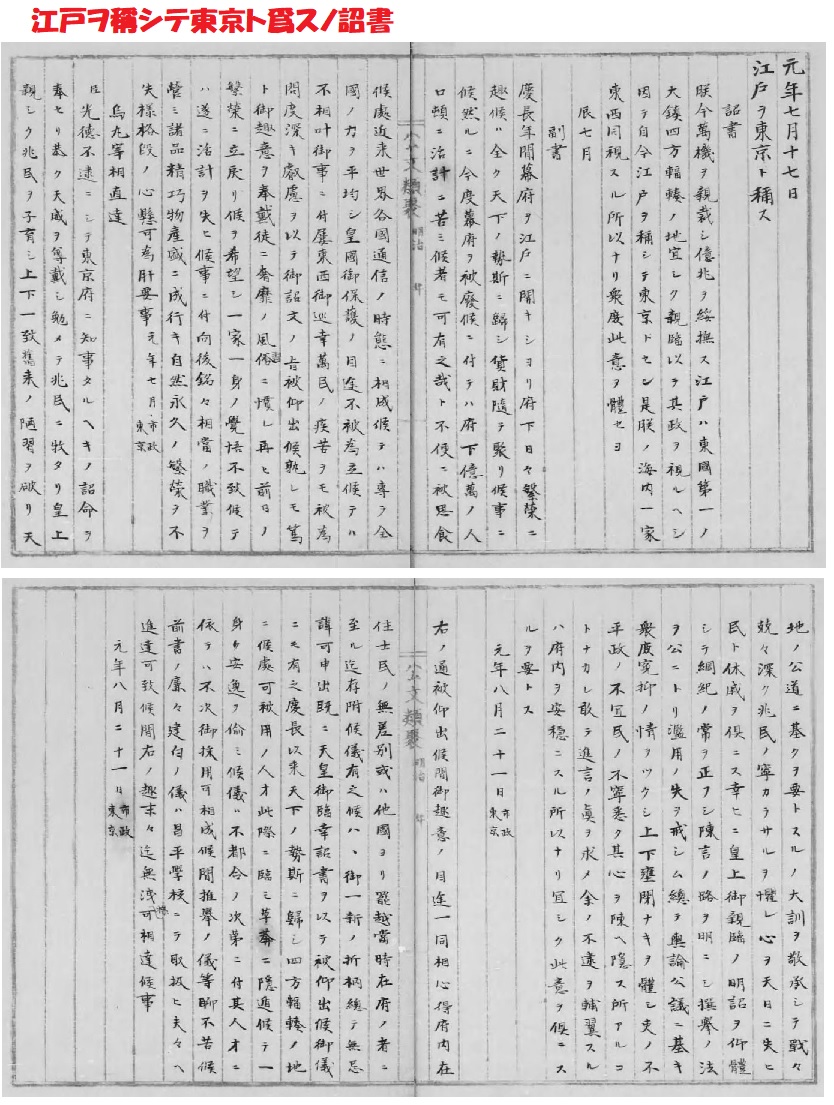 江戸ヲ稱シテ東京ト爲スノ詔書
元年七月十七日
江戸ヲ東京ト稱ス
詔書
朕今萬機ヲ親裁シ億兆ヲ綏撫ス江戸ハ東國第一ノ
大鎮四方輻輳ノ地宜シク親臨以テ其政ヲ視ルヘシ
因テ自今江戸ヲ稱シテ東京トセン是朕ノ海内一家
東西同視スル所以ナリ衆庶此意ヲ體セヨ
辰七月
副書
慶長年間幕府ヲ江戸ニ開キシヨリ府下日々繁榮ニ
趣候ハ全ク天下ノ勢斯ニ歸シ貨財隨テ聚リ候事ニ
候然ルニ今度幕府ヲ被廢候ニ付テハ府下億萬ノ人
口頓ニ活計ニ苦ミ候者モ可有之哉ト不便ニ被思食
公文類聚 明治
候處近来世界各國通信ノ時態ニ相成候テハ專ラ全
國ノ力ヲ平均シ皇國御保護ノ目途不被為立候テハ
不相叶御事ニ付屡東西御巡幸萬民ノ疾苦ヲモ被為
問度深キ叡慮ヲ以テ御詔文ノ旨被仰出候孰レモ篤
ト御趣意ヲ奉戴徒ニ奢靡ノ風俗ニ慣レ再ヒ前日ノ
繁榮ニ立戻リ候ヲ希望シ一家一身ノ覺悟不致候テ
ハ遂ニ活計ヲ失ヒ候事ニ付向後銘々相當ノ職業ヲ
營ミ諸品精巧物産盛ニ成行キ自然永久ノ繁榮ヲ不
失様格段ノ心懸可為肝要事 元年七月 市政 東京
烏丸宰相直達
臣光徳不逮ニシテ東京府ニ知事タルヘキノ詔命ヲ
奉セリ恭ク天威ヲ尊戴シ勉メテ兆民ニ牧タリ皇上
親シク兆民ヲ子育シ上下一致舊来ノ陋習ヲ破リ天
地ノ公道ニ基クヲ要トスルノ大訓ヲ敬承シテ戰々
兢々深ク兆民ノ寧カラサルヲ懼レ心ヲ天日ニ失ヒ
民ト休戚ヲ倶ニス幸ヒニ皇上御親臨ノ明詔ヲ仰體
シテ綱紀ノ常ヲ正フシ陳言ノ路ヲ明ニシ撰擧ノ法
ヲ公ニトリ濫用ノ失ヲ戒シム總テ輿論公議ニ基キ
衆庶寃抑ノ情ヲツクシ上下壅閉ナキヲ體シ吏ノ不
平政ノ不宜民ノ不寧悉ク其心ヲ陳ヘ隠ス所アルコ
トナカレ敢テ進言ノ眞ヲ求メ余ノ不逮ヲ輔翼スル
ハ府内ヲ安穏ニスル所以ナリ宜シク此意ヲ倶ニス
ルヲ要トス
元年八月二十一日 市政 東京
右ノ通被仰出候間御趣意ノ目途一同相心得府内在
公文類聚 明治
住士民ノ無差別或ハ他國ヨリ罷越當時在府ノ者ニ
至ル迄存附候儀有之候ハヽ御一新ノ折柄總テ無忌
諱可申出既ニ天皇御臨幸詔書ヲ以テ被仰出候御儀
ニモ有之慶長以来天下ノ勢斯ニ歸シ四方輻輳ノ地
ニ候處可被用ノ人才此際ニ臨ミ草莽ニ隠遁候テ一
身ノ安逸ヲ偷ミ候儀ハ不都合ノ次第ニ付其人才ニ
依テハ不次御抜用可相成候間推擧ノ儀等聊不苦候
前書ノ廉々建白ノ儀ハ昌平學校ニテ取扱ヒ夫々ヘ
進達可致候間右ノ趣末々迄無洩可相達候事
元年八月二十一日 市政 東京